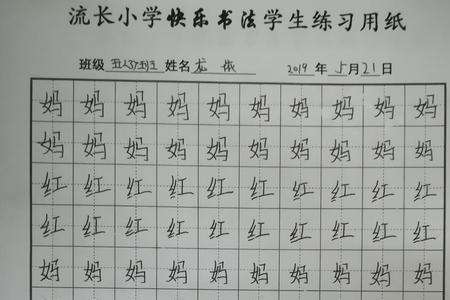 流长小学快乐书法学生练习用纸
班级 姓名 龙 2019 年 5 月 21 日
妈 妈 妈 妈 妈 妈 妈 妈 妈 妈
妈 妈 妈 妈 妈 妈 妈 妈 妈 妈
红 红 红 红 红 红 红 红 红 红
红 红 红 红 红 红 红 红 红 红
妈 妈 妈 妈 妈 妈 妈 妈 妈 妈